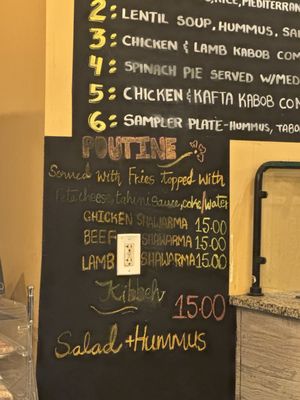 RICE, MEDITERRAN
2: LENTIL SOUP, HUMMUS, SAL
3: CHICKEN & LAMB KABOB COM
4: SPINACH PIE SERVED W/MED
5: CHICKEN & KAFTA KABOB COM
6: SAMPLER PLATE-HUMMUS, TABO
POUTINE
Served with Fries topped with
Feta cheese, tahini sauce, coke/water
CHICKEN SHAWARMA 15.00
BEEF SHAWARMA 15.00
LAMB SHAWARMA 15.00
Kibbeh 15.00
Salad + Hummus